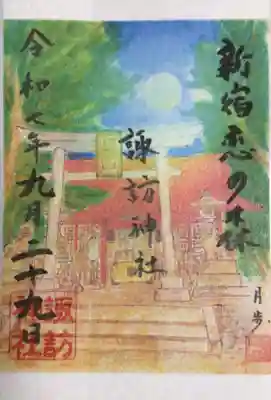 新宿恋の森
諏訪神社
令和七年九月二十九日
月歩
諏訪
神社